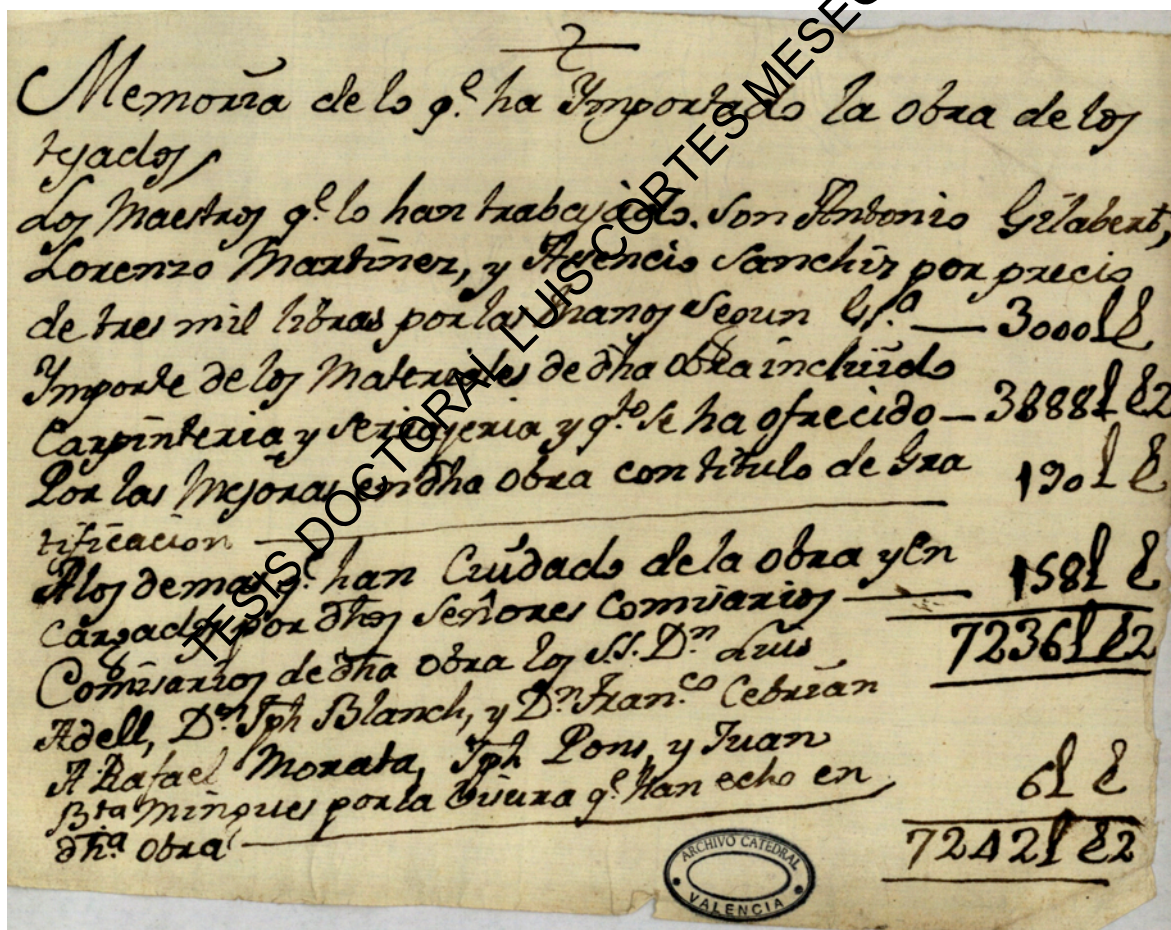 2
Memoria de lo q.e ha Ymportado la obra de los
tejados,
Los Maestros q.e lo han trabajado. son Antonio Gilabert,
Lorenzo Martinez, y Asencio Sanchiz por precio
de tres mil libras por las manos segun — 3000£ S
Ymporte de los Materiales de dha obra incluido
Carpinteria y serrajeria y q.to se ha ofrecido — 3888£ S2
Por las Mejoras en dha obra con titulo de Gra 190£ S
tificacion —
A los demas q.e han Cuidado de la obra y En 158£ S
cargados por dhos Señores Comisarios — 7236£ S2
Comisarios de dha obra los S.S. D.n Luis
Adell, D.n Jph Blanch, y D.n Fran.co Cebrian
A Rafael Morata, Jph Pons, y Juan
Bta Mingues por la Visura q.e Han echo en 6£ S
dha obra — 7242£ S2
TESIS DOCTORAL LUIS CORTES MESEG
ARCHIVO CATEDRAL
VALENCIA